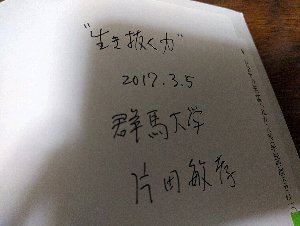 "生き抜く力"
2017.3.5
群馬大学
片田敏孝